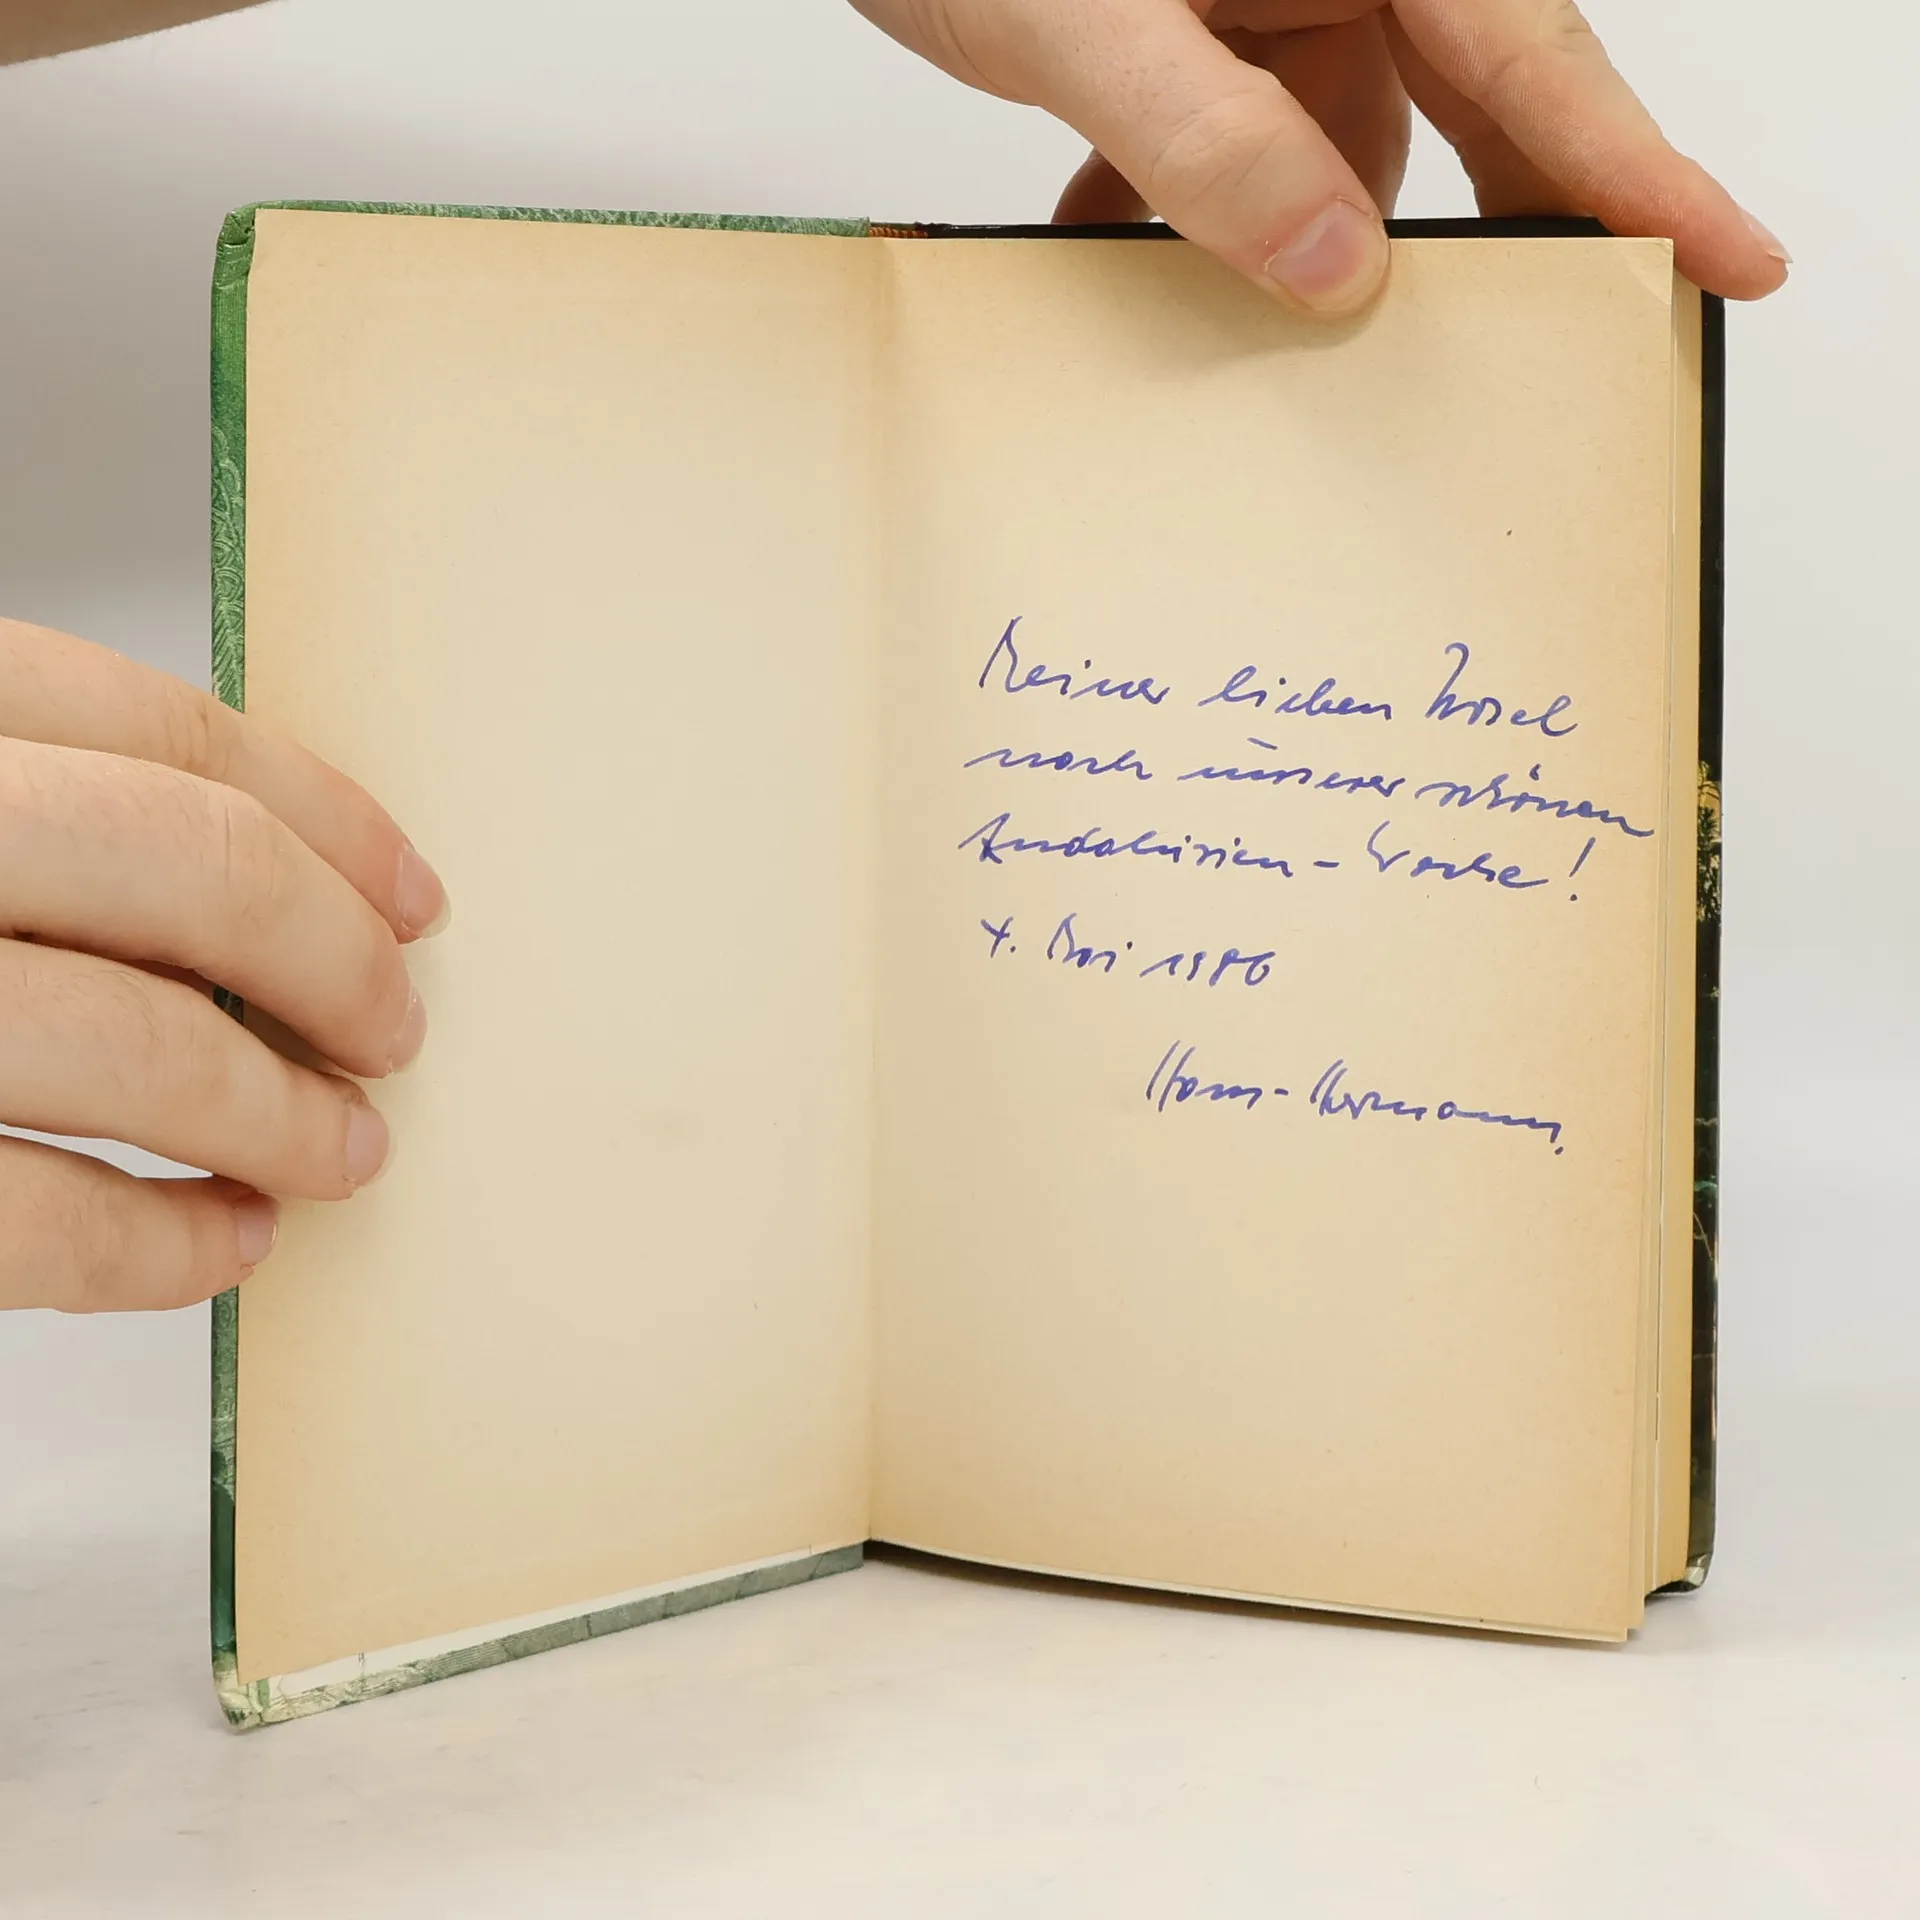 Meiner lieben
nach unserer schönen
Andalusien - Woche!
4. Mai 1986
Hans - Hermann.